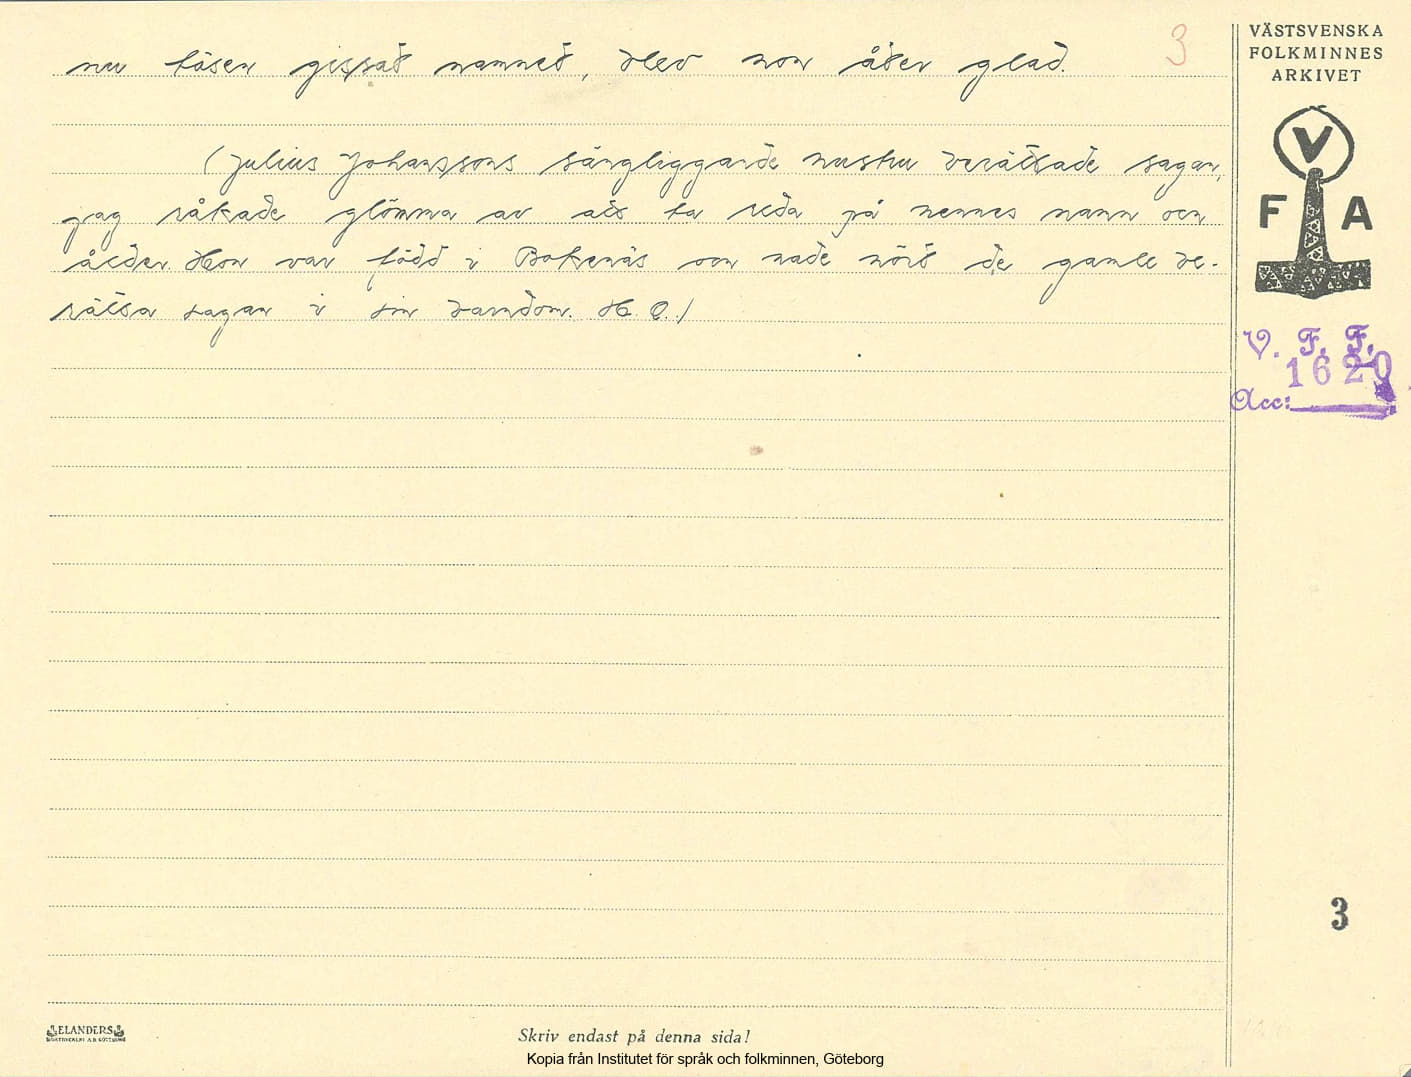 3
nu tösen gissat namnet, blev hon åter glad.
(Julius Johanssons sängliggande hustru berättade sagan,
jag råkade glömma av att ta reda på hennes namn och
ålder. Hon var född i Bokenäs och hade hört de gamle be-
rätta sagan i sin barndom. H. O.)
VÄSTSVENSKA
FOLKMINNES
ARKIVET
V
F A
V. F. F.
1620
Acc:
3
ELANDERS
Skriv endast på denna sida!
Kopia från Institutet för språk och folkminnen, Göteborg